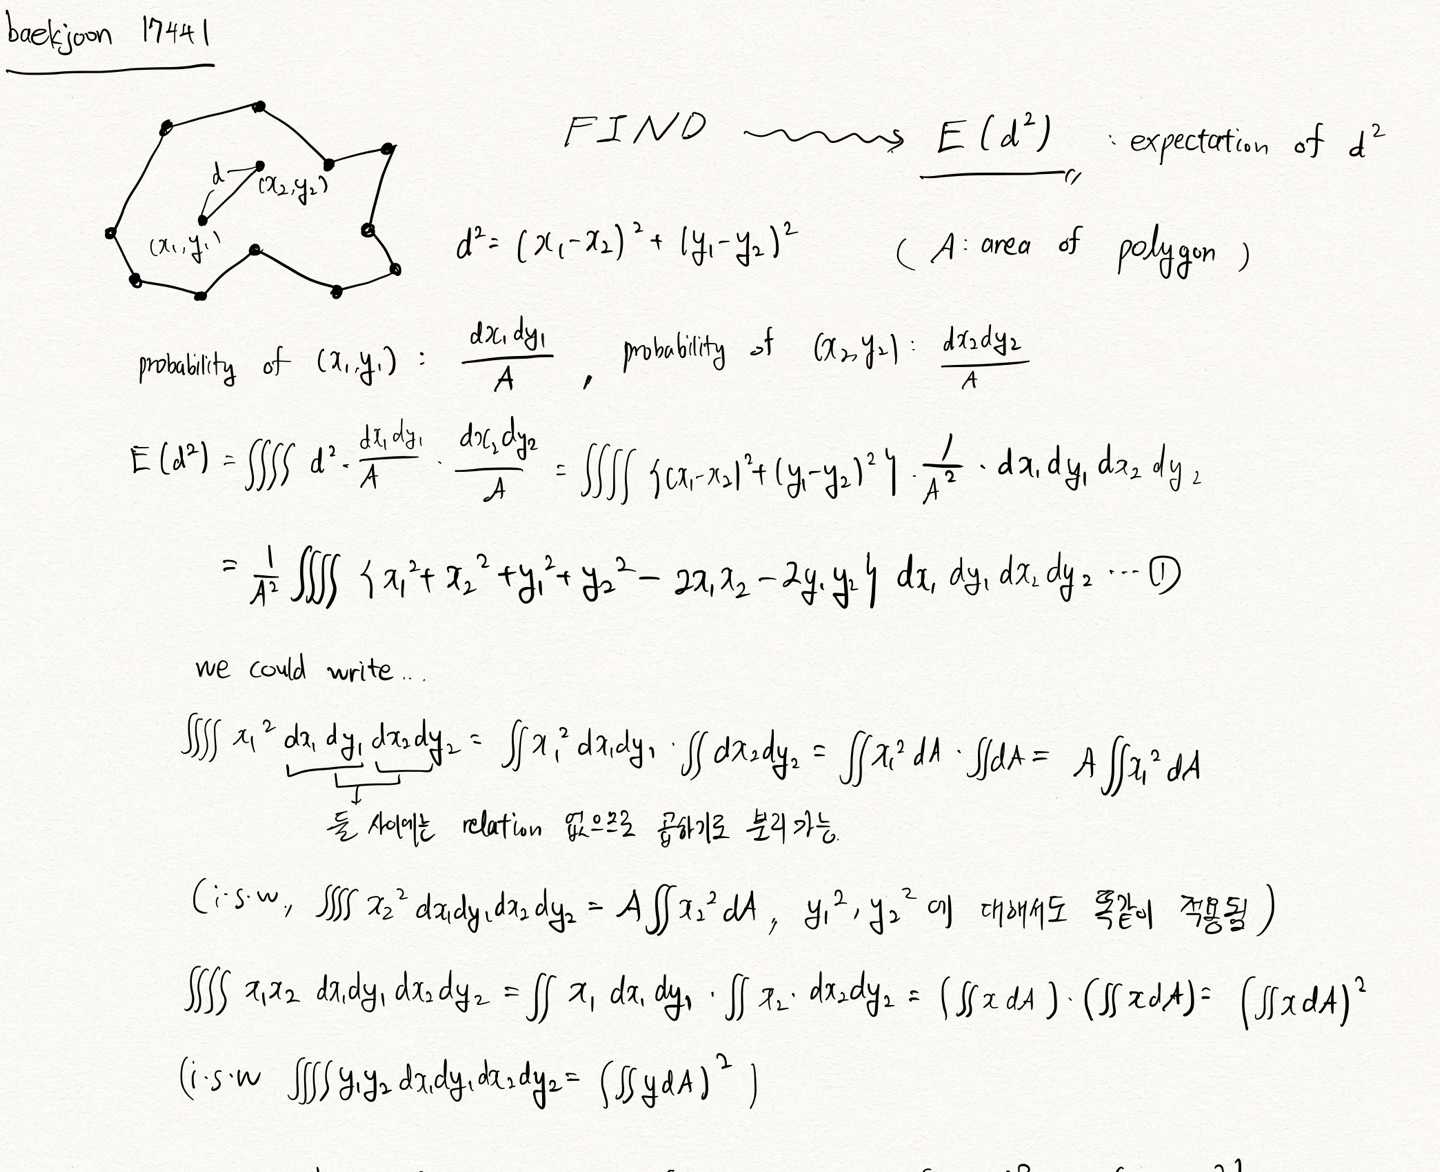 baekjoon 17441
FIND → E(d²) : expectation of d²
d
(x₂,y₂)
(x₁,y₁)
d² = (x₁-x₂)² + (y₁-y₂)² ( A : area of polygon )
probability of (x₁,y₁) : dx₁dy₁/A , probability of (x₂,y₂) : dx₂dy₂/A
E(d²) = ∬∬ d² · dx₁dy₁/A · dx₂dy₂/A = ∬∬ {(x₁-x₂)²+(y₁-y₂)²} · 1/A² · dx₁dy₁dx₂dy₂
= 1/A² ∬∬ {x₁²+x₂²+y₁²+y₂²-2x₁x₂-2y₁y₂} dx₁dy₁dx₂dy₂ ··· ①
we could write...
∬∬ x₁² dx₁dy₁dx₂dy₂ = ∬x₁²dx₁dy₁ · ∬dx₂dy₂ = ∬x₁²dA · ∬dA = A∬x₁²dA
둘 사이에는 relation 없으므로 곱하기로 분리 가능.
(i·s·w, ∬∬ x₂² dx₁dy₁dx₂dy₂ = A∬x₂²dA, y₁², y₂² 에 대해서도 똑같이 적용됨)
∬∬ x₁x₂ dx₁dy₁dx₂dy₂ = ∬ x₁ dx₁dy₁ · ∬ x₂· dx₂dy₂ = (∬xdA)·(∬xdA) = (∬xdA)²
(i·s·w ∬∬y₁y₂dx₁dy₁dx₂dy₂ = (∬ydA)²)